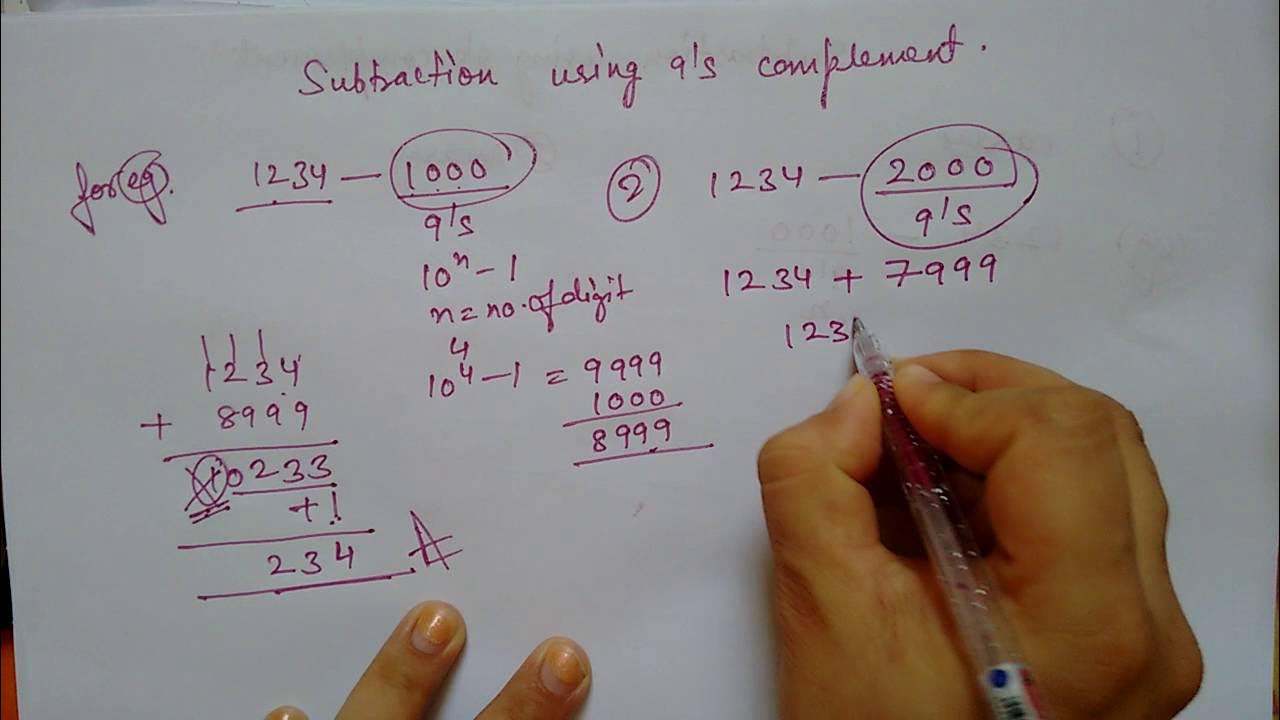 Subtraction using 9's complement.
for eg. 1234 — 1000
9's
10ⁿ - 1
n = no. of digit
4
10⁴ - 1 = 9999
1000
8999
1234
+ 8999
10233
+1
234
② 1234 — 2000
9's
1234 + 7999
123